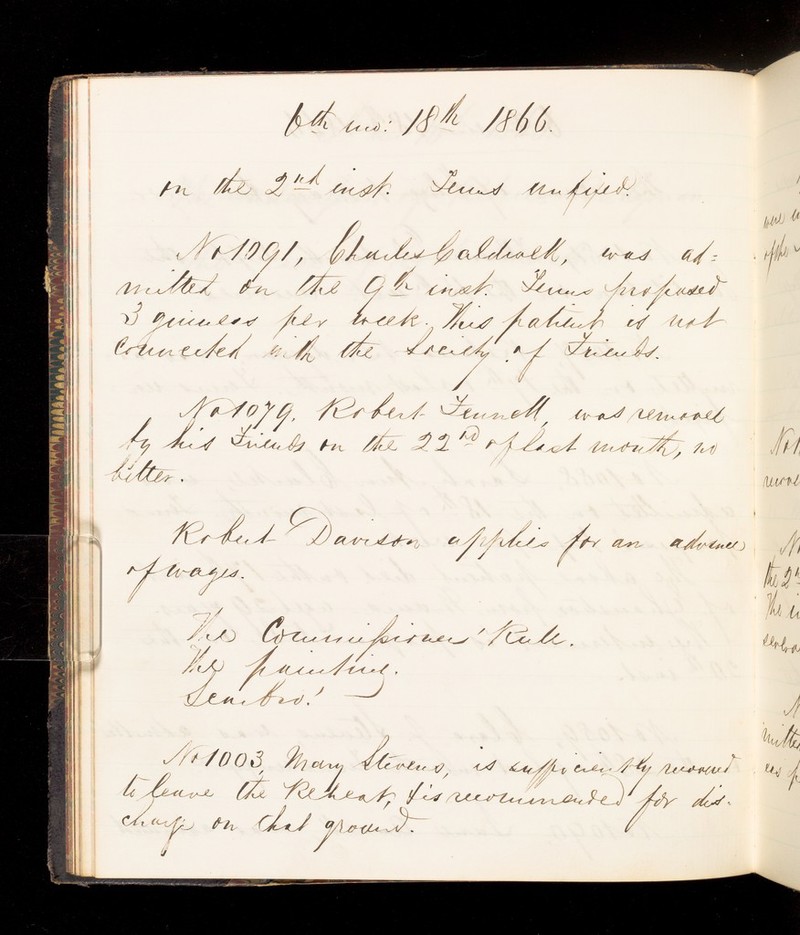 6th mo: 18th 1866.
on the 2nd inst. Terms unfixed.
No 1091, Charles Caldwell, was ad=
mitted on the 9th inst. Terms proposed
3 guineas per week. This patient is not
connected with the Society of Friends.
No 1079. Robert Fennell, was removed
by his Friends on the 22nd of last month, no
better.
Robert Davison applies for an advance
of wages.
The Commissioners' Rule.
The painting.
Scarbro!
No 1003, Mary Stevens, is sufficiently recovered
to leave the Retreat, & is recommended for dis-
charge on that ground.
were
of the
No
the 2nd
The
several
mitted